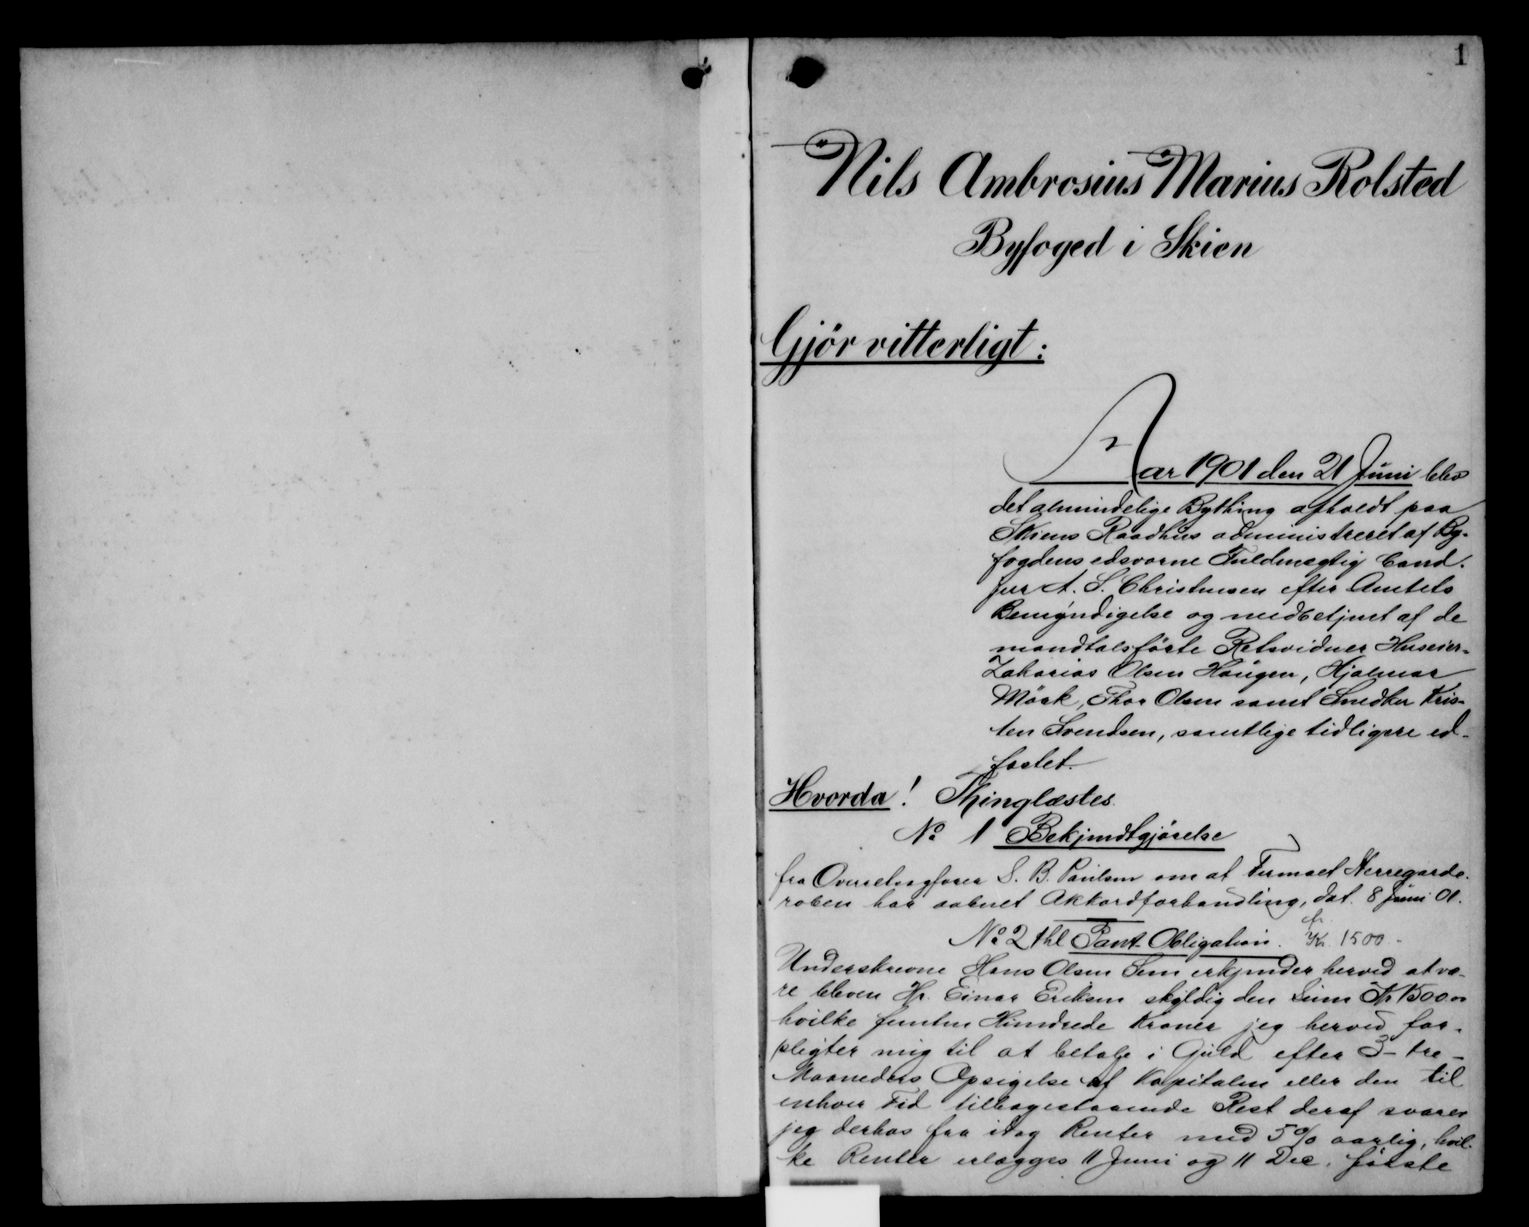 1
Nils Ambrosius Marius Rolsted
Byfoged i Skien
Gjör vitterligt:
Aar 1901 den 21 Juni blev
det almindelige Bything afholdt paa
Skiens Raadhus administreret af By-
fogdens edsvorne Fuldmægtig Cand.
jur A. S. Christensen efter Amtets
Bemyndigelse og medbetjent af de
mandtalsförte Retsvidner Huseier-
Zakarias Olsen Haugen, Hjalmar
Mörk, Thor Olsen samt Snedker Kris-
ten Svendsen, samtlige tidligere ed-
fæstet.
Hvorda! Thinglæstes.
No 1 Bekjendtgjörelse
fra Overretssagförer S. B. Paulsen om at Firmaet Herregarde-
roben har aabnet Akkordforhandling, dat. 8 Juni 01.
No 2 thl Pant-Obligation. fr. Kr. 1500-
Underskrevne Hans Olsen Sem erkjender herved at væ-
re bleven Hr. Einar Eriksen skyldig den Sum Kr 1500 00
hvilke femten Hundrede Kroner jeg herved for-
pligter mig til at betale i Guld efter 3- tre-
Maaneders Opsigelse af Kapitalen eller den til
enhver Tid tilbagestaaende Rest deraf svarer
jeg derhos fra idag Renter med 5% aarlig, hvil-
ke Renter erlægges 11 Juni og 11 Dec. förste